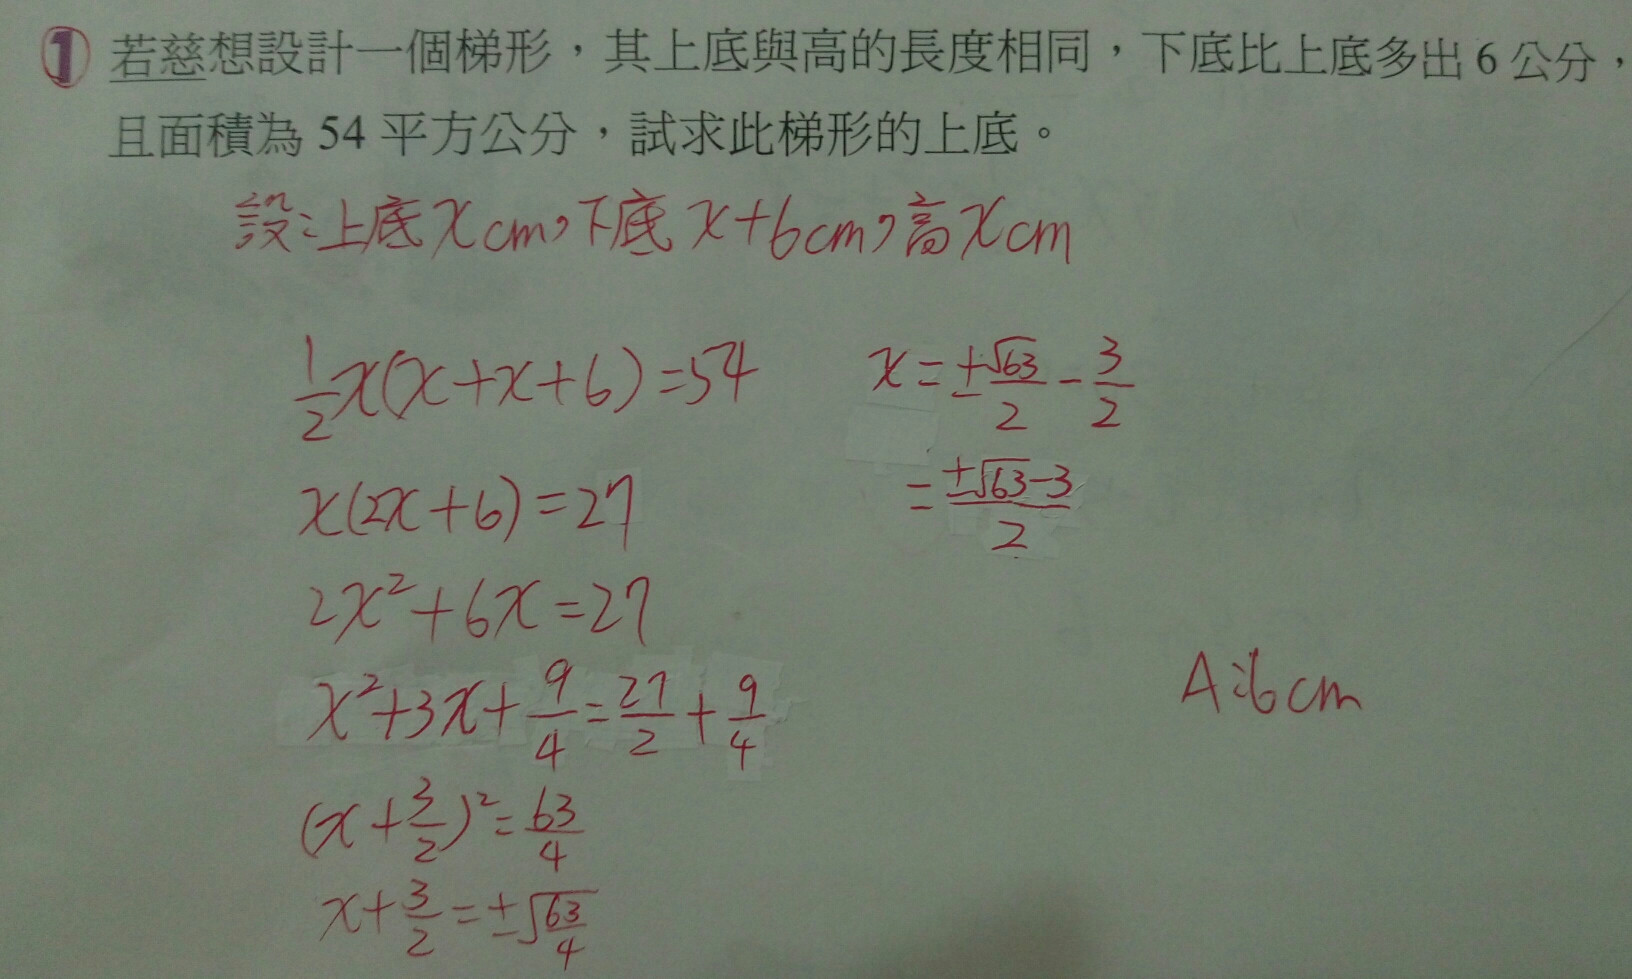 ① 若慈想設計一個梯形，其上底與高的長度相同，下底比上底多出 6 公分，
且面積為 54 平方公分，試求此梯形的上底。
設：上底 x cm，下底 x+6 cm，高 x cm
1/2 x(x+x+6)=54
x(2x+6)=27
2x²+6x=27
x²+3x+9/4=27/2+9/4
(x+3/2)²=63/4
x+3/2=±√(63/4)
x=±√63/2-3/2
=(±√63-3)/2
A:6 cm